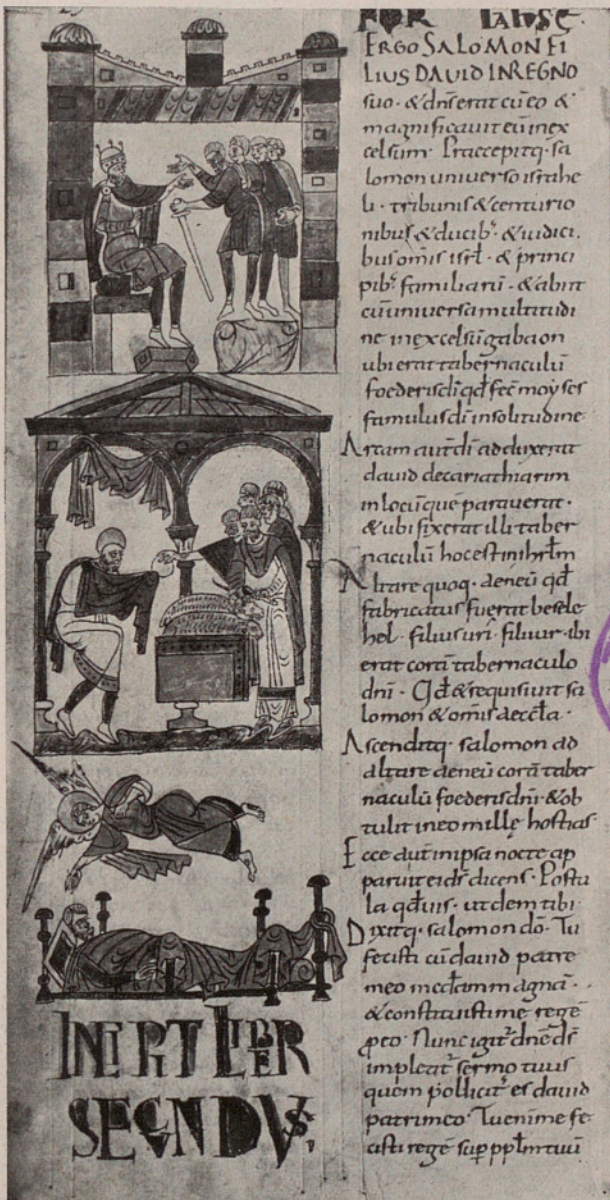 ERGO SALOMON FI
LIUS DAVID IN REGNO
suo · & dn̄s erat cū eo &
magnificavit eū in ex
celsum · Praecepitq · sa
lomon universo israhe
li · tribunis & centurio
nibus & ducib; & iudici
bus omis isrl · & princi
pib; familiarū · & abiit
cū universa multitudi
ne in excelsū gabaon
ubi erat tabernaculū
foederis dī qđ fec moyses
famulus dī in solitudine
Arcam aut dī adduxerat
david de cariathiarim
in locū quē paraverat ·
& ubi fixerat illi taber
naculū hoc est in ihrlm
Altare quoq · aeneū qđ
fabricatus fuerat besele
hel · filius uri · filii ur · ibi
erat corā tabernaculo
dnī · Qđ & requisiunt sa
lomon & omis aeccła ·
Ascenditq · salomon ad
altare aeneū corā taber
naculū foederis dnī · & ob
tulit in eo mille hostias ·
Ecce aut in ipsa nocte ap
paruit ei ds dicens · Postu
la qđ vis · ut dem tibi ·
Dixitq · salomon dō · Tu
fecisti cū david patre
meo mcđam magnā ·
& constituisti me regē
p eo · Nunc igit dnē ds
impleat sermo tuus
quem pollicit es david
patri meo · Tu enī me fe
cisti regē sup pplm tuū
INCIPIT LIBER
SECUNDUS;